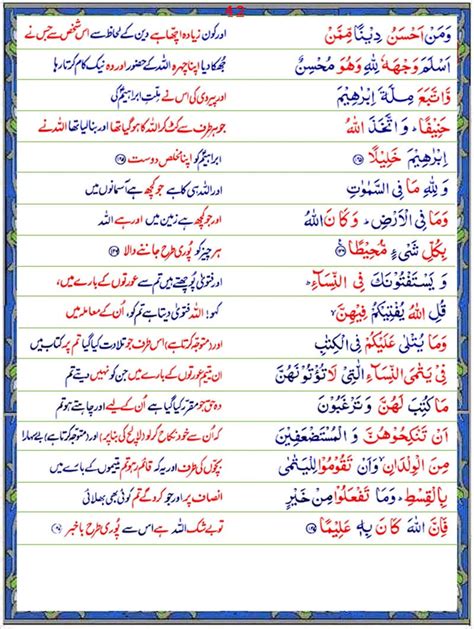 12
وَمَنْ اَحْسَنُ دِيْنًا مِّمَّنْ اور کون زیادہ اچھا ہے دین کے لحاظ سے اس شخص سے جس نے
اَسْلَمَ وَجْهَهٗ لِلّٰهِ وَهُوَ مُحْسِنٌ جھکا دیا اپنا چہرہ اللہ کے حضور اور وہ نیک کام کرتا رہا
وَّاتَّبَعَ مِلَّةَ اِبْرٰهِيْمَ اور پیروی کی اس نے ملّتِ ابراہیمؑ کی
حَنِيْفًا ؕ وَ اتَّخَذَ اللّٰهُ جو ہر طرف سے کٹ کر اللہ کا ہو گیا تھا اور بنا لیا تھا اللہ نے
اِبْرٰهِيْمَ خَلِيْلًا ابراہیمؑ کو اپنا مخلص دوست
وَ لِلّٰهِ مَا فِى السَّمٰوٰتِ اور اللہ ہی کا ہے جو کچھ ہے آسمانوں میں
وَمَا فِى الْاَرْضِ ؕ وَ كَانَ اللّٰهُ اور جو کچھ ہے زمین میں اور ہے اللہ
بِكُلِّ شَىْءٍ مُّحِيْطًا ہر چیز کو پوری طرح جاننے والا
وَ يَسْتَفْتُوْنَكَ فِى النِّسَآءِ ؕ اور فتویٰ پوچھتے ہیں تم سے عورتوں کے بارے میں،
قُلِ اللّٰهُ يُفْتِيْكُمْ فِيْهِنَّ ۙ کہو! اللہ فتویٰ دیتا ہے تم کو، اُن کے معاملہ میں
وَمَا يُتْلٰى عَلَيْكُمْ فِى الْكِتٰبِ اور (متوجّہ کرتا ہے) اس طرف جو تلاوت کیا گیا تم پر کتاب میں
فِىْ يَتٰمَى النِّسَآءِ الّٰتِىْ لَا تُؤْتُوْنَهُنَّ ان یتیم عورتوں کے بارے میں جن کو نہیں دیتے تم
مَا كُتِبَ لَهُنَّ وَ تَرْغَبُوْنَ وہ حق جو مقرر کیا گیا ہے اُن کے لیے اور چاہتے ہو تم
اَنْ تَنْكِحُوْهُنَّ وَ الْمُسْتَضْعَفِيْنَ کہ اُن سے خود نکاح کر لو (لالچ کی بنا پر) اور (متوجہ کرتا ہے) بے سہارا
مِنَ الْوِلْدَانِ ۙ وَاَنْ تَقُوْمُوْا لِلْيَتٰمٰى بچّوں کی طرف اور یہ کہ قائم رہو تم یتیموں کے بارے میں
بِالْقِسْطِ ؕ وَمَا تَفْعَلُوْا مِنْ خَيْرٍ انصاف پر اور جو کرو گے تم کوئی بھی بھلائی
فَاِنَّ اللّٰهَ كَانَ بِهٖ عَلِيْمًا تو بے شک اللہ ہے اس سے پوری طرح باخبر